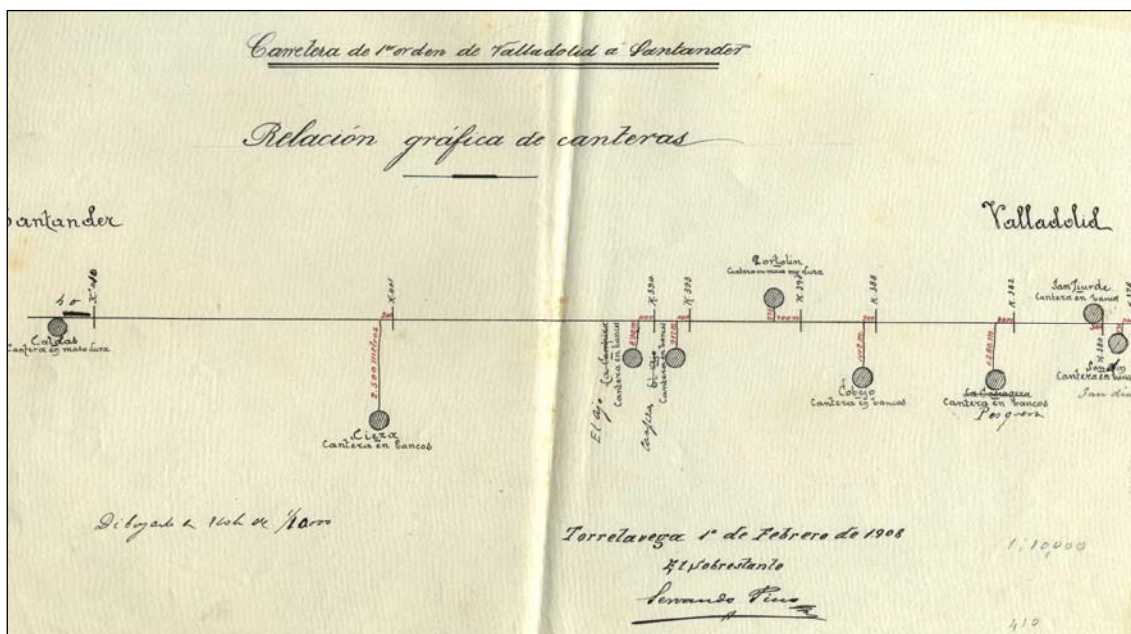 Carretera de 1er orden de Valladolid á Santander
Relación gráfica de canteras
Santander
Valladolid
40
Caldas
Cantera en masa dura
K. 401
2.500 metros
Cieza
Cantera en bancos
K. 394
890 m
El Ajo
Cantera en bancos
K. 393
El Ajo
Cantera en bancos
Portolin
Cantera en masa muy dura
200 m
K. 388
Cobejo
Cantera en bancos
K. 382
1.200 m
Cantera en bancos
Pesquera
San Tiurde
Cantera en banco
K. 380
Cantera en bancos
Dibujado en Escala de 1/10000
Torrelavega 1º de Febrero de 1908
El Sobrestante
Servando Pino
1:10,000
410